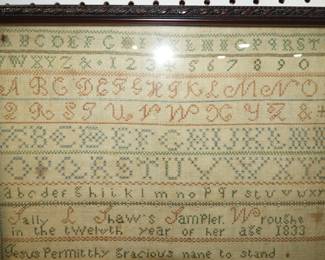 A B C D E F G H I K L M N O P Q R S T
V W X Y Z & 1 2 3 4 5 6 7 8 9 0
A B C D E F G H I K L M N O
P Q R S T U V W X Y Z &
A B C D E F G H I J K L M N
O P Q R S T U V W X Y Z
a b c d e f g h i i k l m n o p q r s t u v w x y
Sally L Shaw's Sampler. Wrought
in the twelvth year of her age 1833
Jesus Permit thy Gracious name to stand